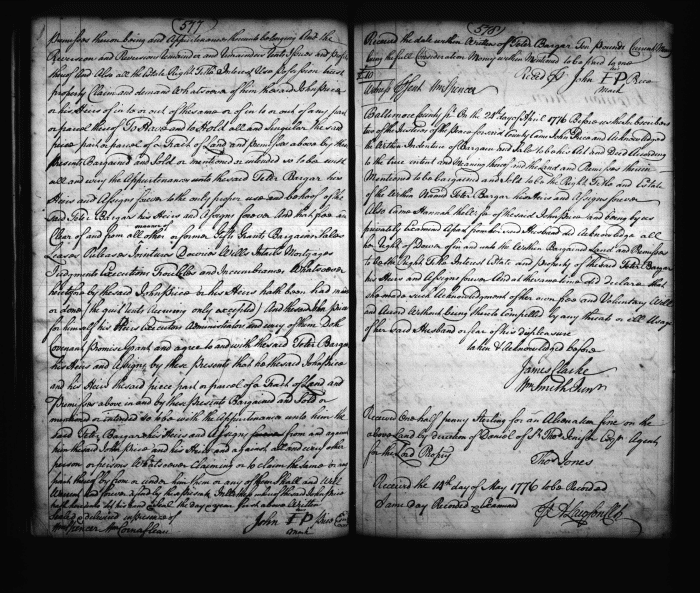 577
Premises thereon being and Appurtenances thereunto belonging And the
Reversion and Reversions Remainder and Remainders Rents Issues and Profits
thereof And also all the Estate Right Title Interest Use Possession Inheritance
property Claim and demand Whatsoever of him the said John Price
or his Heirs of in to or out of the same or of in to or out of any part
or parcel thereof To Have and to Hold all and singular the said
piece part or parcel of a Tract of Land and Premisses above by these
Presents Bargained and Sold or mentioned or intended so to be with
all and every the Appurtenances unto the said Peter Bargar his
Heirs and Assigns forever to the only proper use and behoof of the
said Peter Bargar his Heirs and Assigns forever And that free and
Clear of and from all manner other or former Gifts Grants Bargains Sales
Leases Releases Jointures Dowries Wills Intails Mortgages
Judgments Executions Troubles and Incumbrances Whatsoever
heretofore by the said John Price or his Heirs hath been had made
or done (the quit rents accruing only excepted) And the said John Price
for himself his Heirs Executors Administrators and every of them Doth
Covenant Promise Grant and agree to and with the said Peter Bargar
his Heirs and Assigns by these presents that he the said John Price
and his Heirs the said piece part or parcel of a Tract of Land and
Premisses above in and by these Presents Bargained and Sold or
mentioned or intended so to be with the Appurtenances unto him the
said Peter Bargar his Heirs and Assigns from and against
him the said John Price and his Heirs and against all and every other
person or persons Whatsoever Claiming or to claim the same or any
part thereof by from or under him them or any of them Shall and Will
Warrant and forever defend by these presents In Testimony whereof the said John Price
hath hereunto set his hand and Seal the day and year first above Written
Sealed & delivered in presence of
Wm Spencer
John I P Price
mark
578
Received the date within Written of Peter Bargar Ten pounds Current Money
being the full Consideration Money within Mentioned to be paid to me
£10
Witness Wm Spencer
John I P Price
mark
Baltimore County Sct. On the 28th day of April 1776 Before us the subscribers
two of the Justices of the Peace for said County Came John Price and Acknowledged
the Within Indenture of Bargain and Sale to be his Act and Deed According
to the true intent and Meaning thereof and the Land and Premisses therein
Mentioned to be bargained and sold to be the Right Title and Estate
of the Within Named Peter Bargar his Heirs and Assigns forever
Also Came Hannah Wife of the said John Price and being by us
privately Examined Apart from her said Husband did Acknowledge all
her Right of Dower of in and unto the Within Bargained Land and Premisses
to be the Right Title Interest Estate and property of the said Peter Bargar
his Heirs and Assigns forever And at the same time did declare that
she made such Acknowledgment of her own free and Voluntary Will
and Accord Without being thereto Compelled by any threats or ill Usage
of her said Husband or fear of his displeasure
taken & Acknowledged before
James Clarke
Wm Smith Junr
Received One half penny Sterling for an Alienation fine on the
above Land by direction of Daniel of St Thos Jenifer Esqr Agent
for the Lord Propry
Thos Jones
Received the 14th day of May 1776 to be Recorded
Same day Recorded & Examined